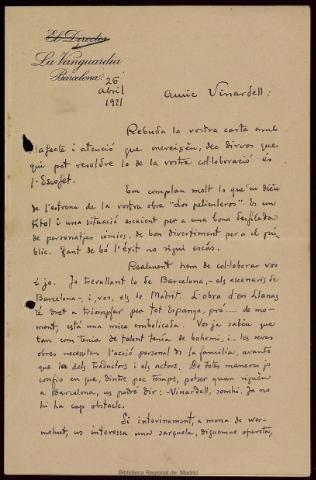 El Director
La Vanguardia
Barcelona
26
abril
1921
Amic Vinardell:
Rebuda la vostra carta amb
l'afecte i atenció que mereixeu, dec dir-vos que
qui pot resoldre lo de la vostra col·laboració és
l'Escofet.
Em complau molt lo que'm dieu
de l'estrena de la vostra obra "Los peliculeros". Es un
títol i una situació escaient per a una bona desfilada
de personatjes còmics, de bon divertiment per a el pú-
blic. Tant de bó l'èxit no sigui escàs.
Realment hem de col·laborar vos
i jo. Jo treballant lo de Barcelona, - els escenaris de
Barcelona -, i, vos, els de Madrit. L'obra d'en Alanas
té dret a triomfar per tot Espanya, però .... de mo-
ment, està una mica embolicada. Vos ja sabeu que
tan com tenia de talent tenia de bohemi, i les seves
obres necessiten l'acció personal de la familia, avants
que dels traductors i els actors. De totes maneres jo
confio en que, dintre poc temps, potser quan vigueu
a Barcelona, us podré dir: - Vinardell, somhi. Ja no
hi ha cap obstacle.
Si interinament, a manera de ver-
mohut, us interessa una sarsuela, diguemne opereta,
Biblioteca Regional de Madrid